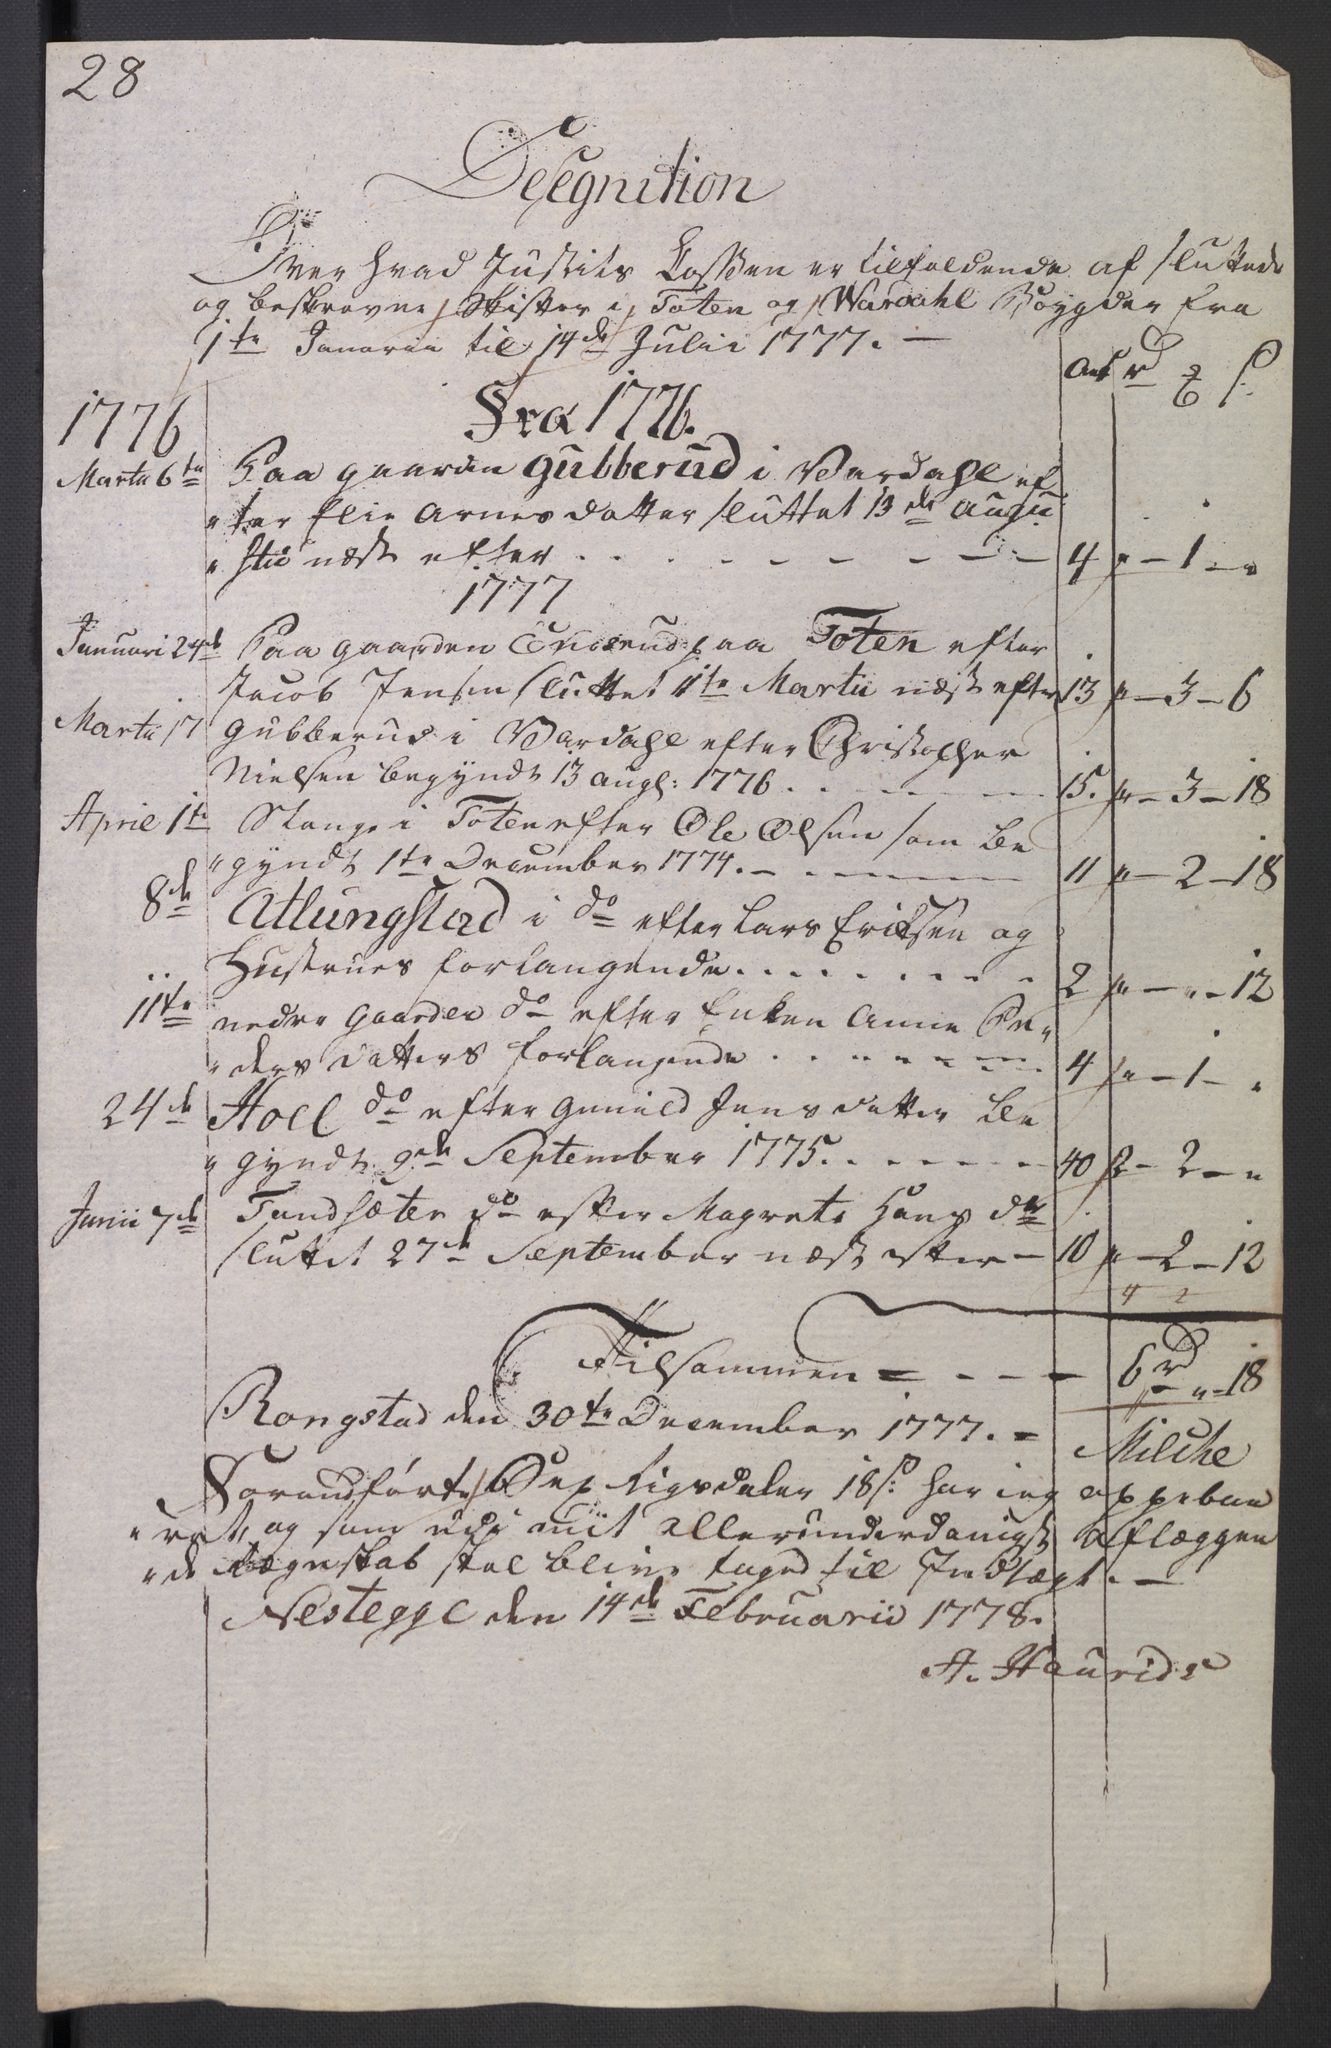 28
Desegnition
Over hvad Justits Casßen er tilfaldende af sluttede
og beskrevne Skifter i Toten og Wardahl Bøygder fra
1te Januarii til 14de Julii 1777. —
Ark rd ꝣ ß
1776 Fra 1776.
Martii 6te Paa gaarden Gubberud i Vardahl ef
"ter Elie Arnesdatter sluttet 13de Augu
"stii næst efter . . . — — — 4 " — 1 — "
1777
Januari 24de Paa gaarden paa Toten efter
Jacob Jensen sluttet 11te Martii næst efter 13 " — 3 — 6
Martii 17 Gubberud i Vardahl efter Christopher
Nielsen begyndt 13 Augs: 1776 . . . . 15. " — 3 — 18
April 1te Stange i Toten efter Ole Olsen som be
"gyndt 1te December 1774. — . — — — 11 " — 2 — 18
8de Atlungstad i do efter Lars Eriksen og
Hustrues forlangende . . . . . . 2 " — " — 12
11te nedre Gaarder do efter Enken Anne Pe"
"ders datters forlangende . . . . 4 " — 1 — "
24de Hoel do efter Gunild Jens datter be
"gyndt 9de September 1775. . . . . 40 2 — 2 — "
Junii 7de Tandsæter do efter Magrete Hans dtr
sluttet 27de September næst efter — 10 " — 2 — 12
4 2
Tilsammen = . — — — 6 rd " — 18
Rongstad den 30te December 1777. = Milche
Forandførte Sex Rigsdaler 18 ß: har ieg oppebaa
"ret, og som udi mit allerunderdanigst aflæggen
"de Regnskab skal blive taget til Indtægt. —
Nesteggc den 14de Februarii 1778.
A. Hauride